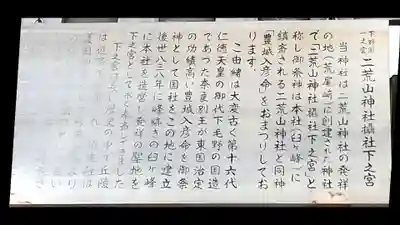 下野国
下之宮
二荒山神社攝社下之宮
当神社は二荒山神社の発祥
の地(荒尾崎)に創建された神社
で「二荒山神社攝社下之宮」と
称し御祭神は本社(臼ヶ峰)に
鎮斎される二荒山神社と同神
「豊城入彦命」をおまつりしてお
ります。
この由緒は大変古く第十六代
仁徳天皇の御代下毛野の国造
であった奈良別王が東国治定
の功績高い豊城入彦命を御祭
神として国社をこの地に建立
後世八三八年に峰続きの臼ヶ峰
に本社を造営し発祥の聖地を
下之宮として
した
丘陵
は